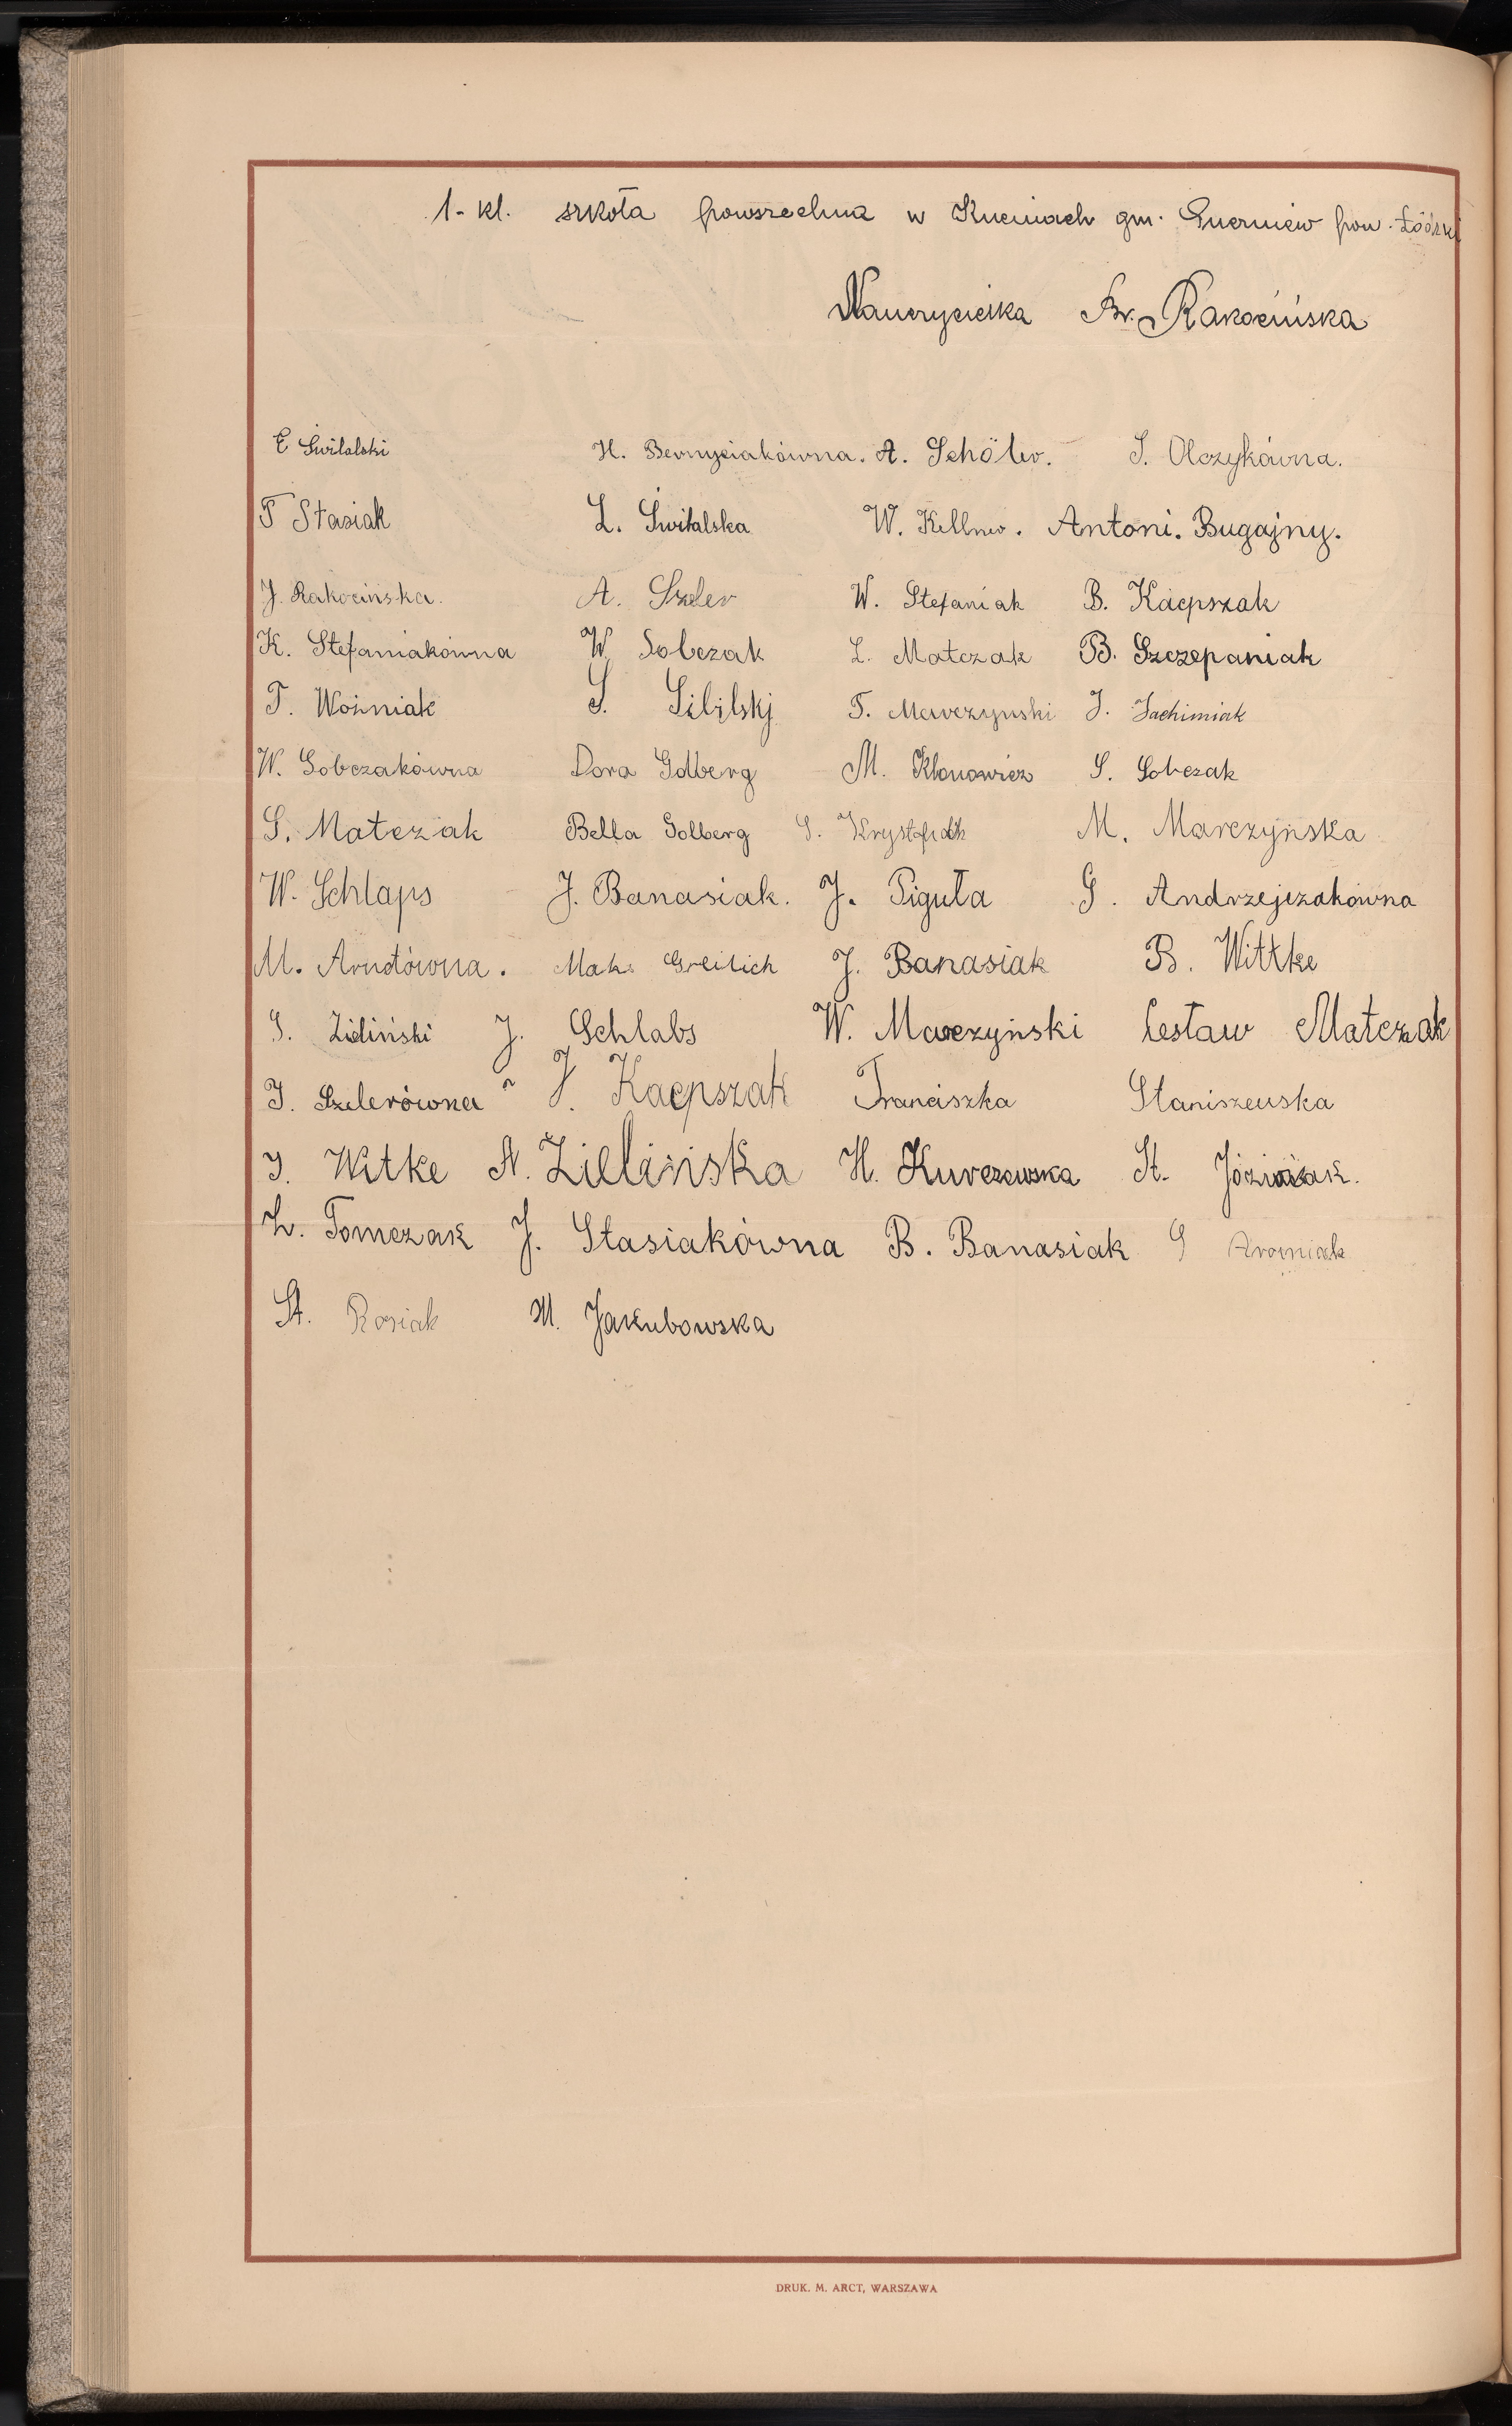 1-kl. szkoła powszechna w Kuciniach gm. Puczniew pow. Łódzki
Nauczycielka Br. Rakocińska
E Świtalski H. Bernyciakówna. A. Schöler. J. Olczykówna.
F Stasiak L. Świtalska W. Kellner. Antoni. Bugajny.
J. Rakocińska. A. Szeler W. Stefaniak B. Kacpszak
K. Stefaniakówna W. Sobczak L. Matczak B. Szczepaniak
F. Woźniak S. F. Marczynski J. Jachimiak
W. Sobczakówna Dora Goldberg M. Klonowicz S. Sobczak
S. Matczak Bella Golberg S. M. Marczyńska
W. Schlaps J. Banasiak. J. Piguła G. Andrzejczakówna
M. Arndtówna. Maks Greilich J. Banasiak B. Wittke
S. Zieliński J. Schlabs W. Marczyński Cesław Matczak
J. Szelerówna J. Kacpszak Franciszka Staniszewska
J. Witke A. Zielińska H. Kurczewska St. Jóźwiak.
L. Tomczak J. Stasiakówna B. Banasiak S
St. Rosiak M. Jakubowska
DRUK. M. ARCT, WARSZAWA